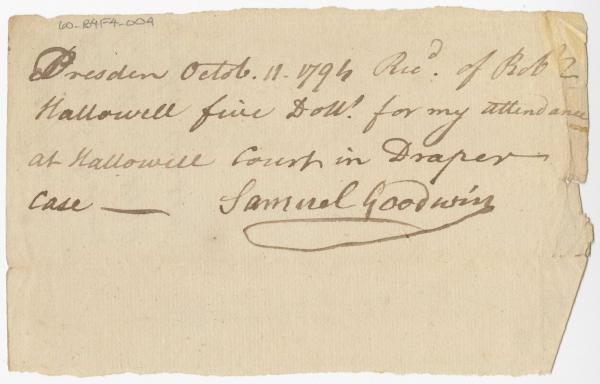 60-R4F4-009
Dresden Octob. 11. 1794 Rec'd. of Rob't
Hallowell five Doll's. for my attendance
at Hallowell Court in Draper
Case — Samuel Goodwin